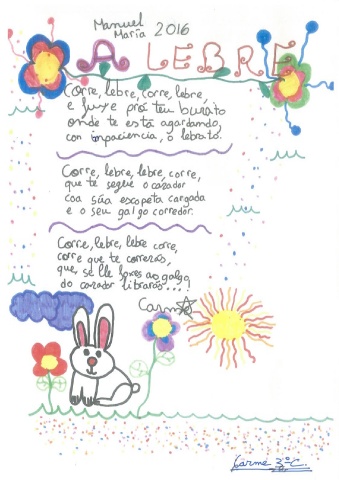 Manuel
María 2016
A LEBRE
Corre, lebre, corre, lebre,
e fuxe pró teu burato
onde te está agardando,
con impaciencia, o lebrato.
Corre, lebre, lebre, corre,
que te segue o cazador
coa súa escopeta cargada
e o seu galgo corredor.
Corre, lebre, lebre corre,
corre que te correrás,
que, se lle foxes ao galgo
do cazador librarás...!
Carme
Carme 3º C.